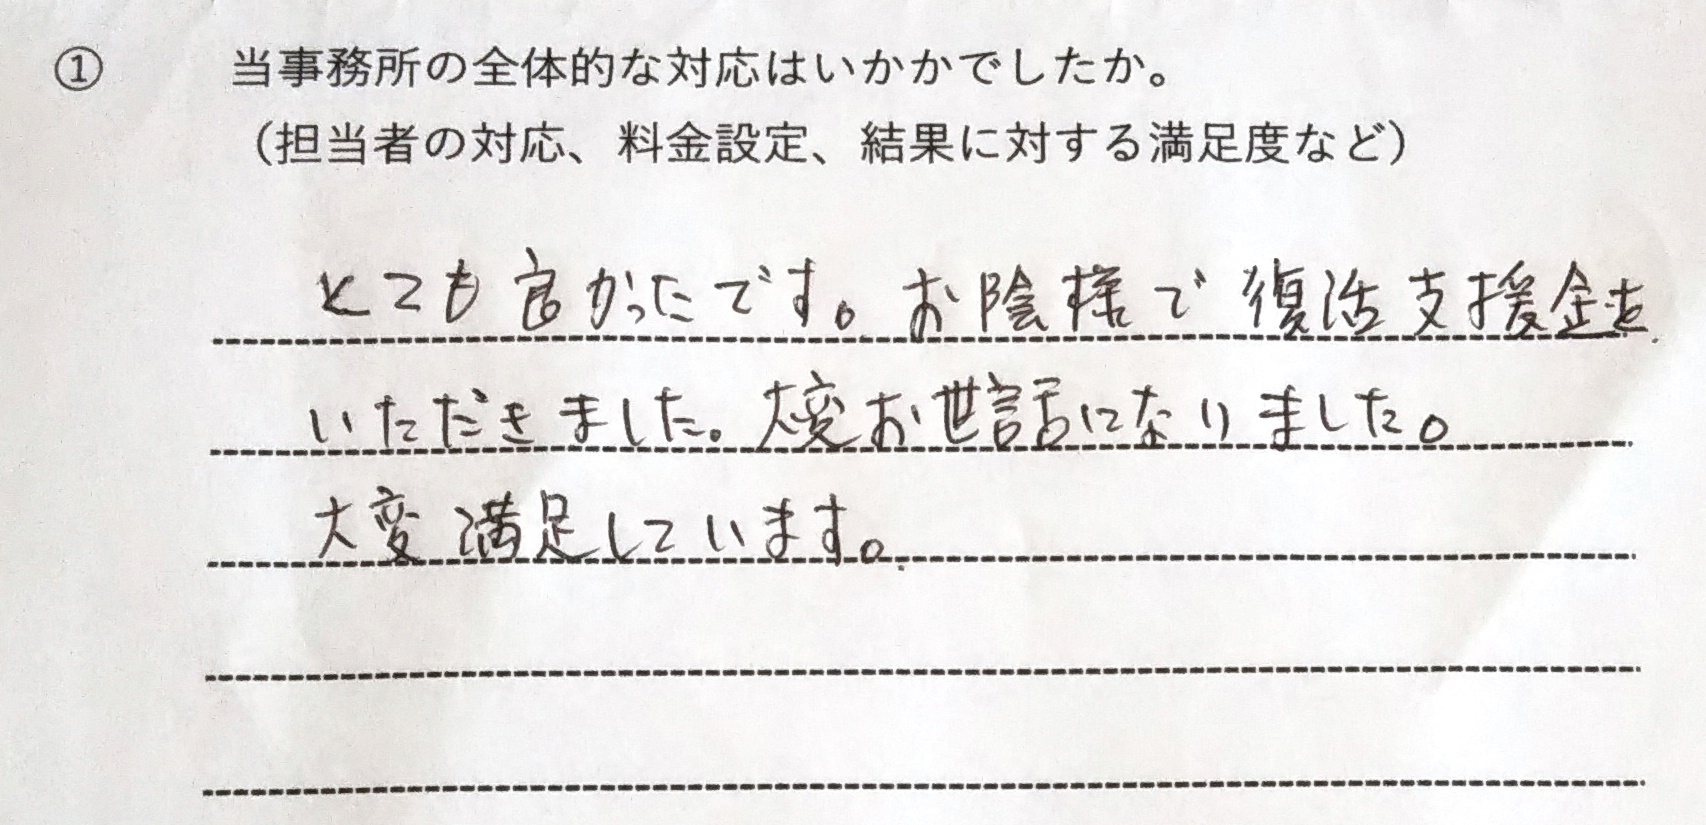 ① 当事務所の全体的な対応はいかかでしたか。
（担当者の対応、料金設定、結果に対する満足度など）
とても良かったです。お陰様で復活支援金を
いただきました。大変お世話になりました。
大変満足しています。